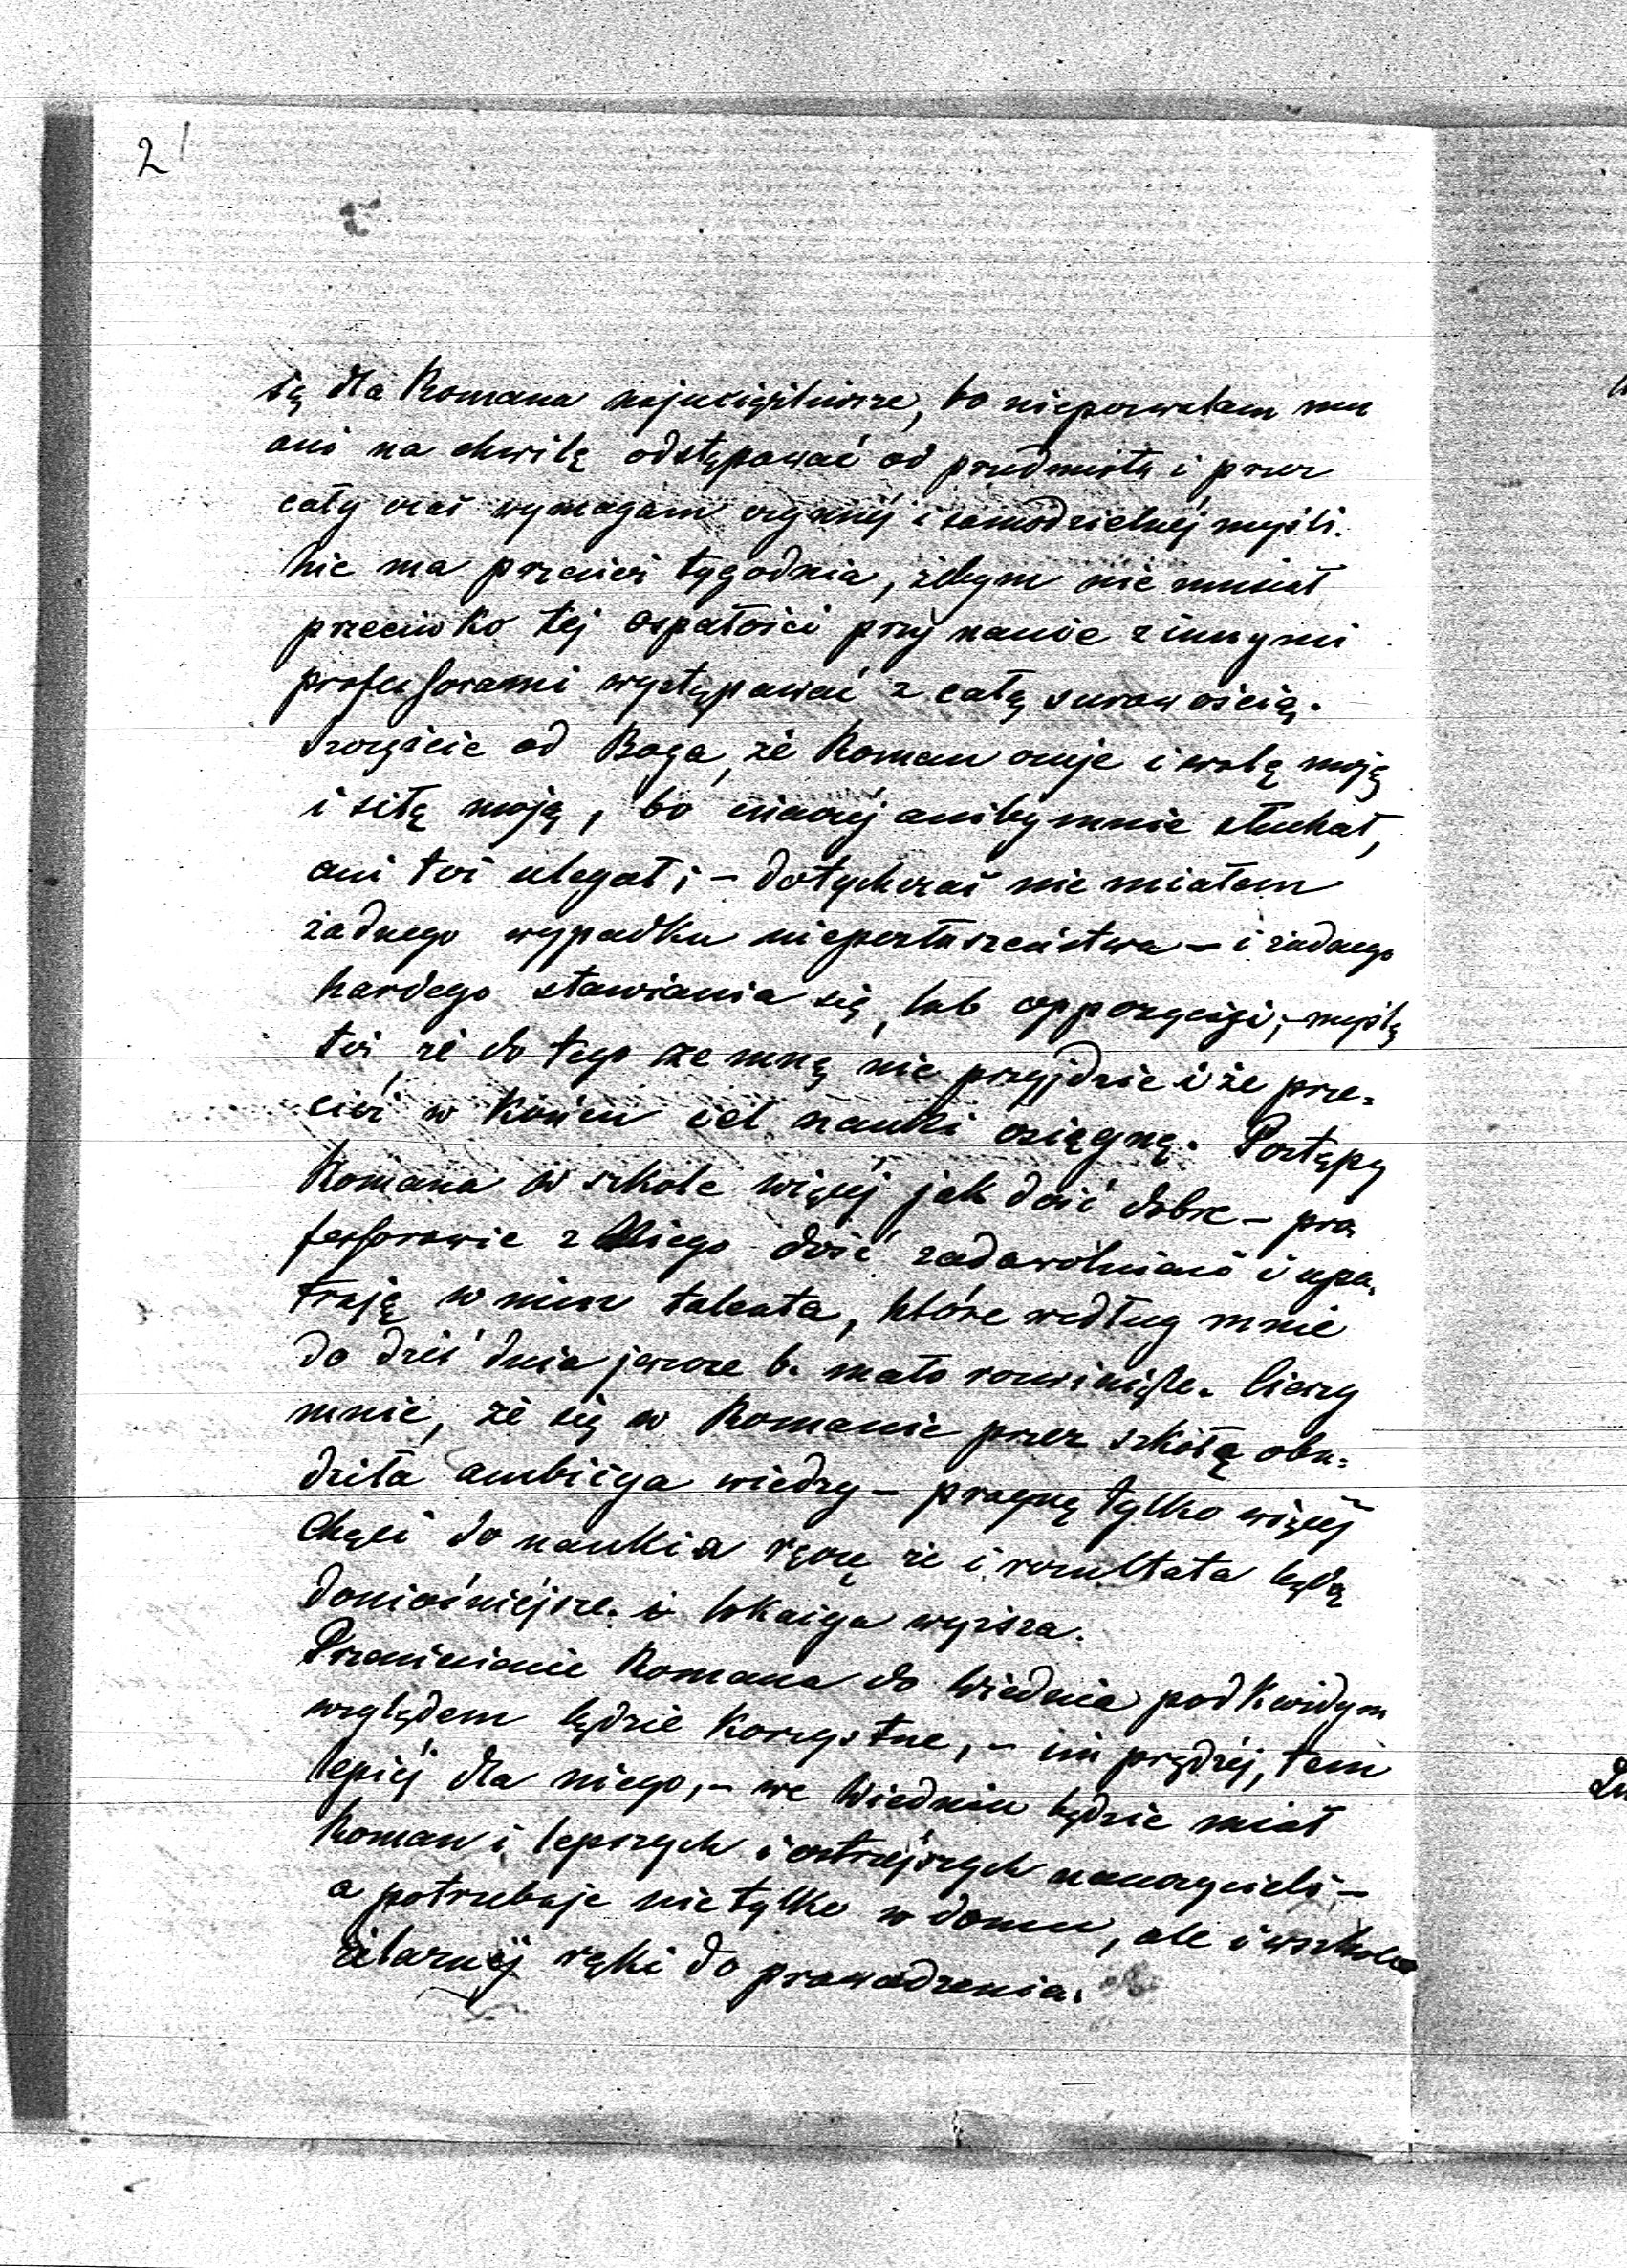 2
są dla Romana najuciążliwsze, bo niepozwalam mu
ani na chwilę odstępować od przedmiotu i przez
cały czas wymagam czynnéj i samodzielnéj myśli.
Nie ma przecież tygodnia, żebym nie musiał
przeciwko tej ospałości przy nauce z innymi
professorami występować z całą surowością.
Szczęście od Boga, że Roman czuje i wolę moją
i siłę moją, bo inaczéj aniby mnie słuchał,
ani też ulegał; – dotychczas nie miałem
żadnego wypadku nieposłuszeństwa – i żadnego
hardego stawiania się, lub oppozycyi; – myślę
też, że do tego ze mną nie przyjdzie i że prze=
cież w końcu cel nauki osiągnę. Postępy
Romana w szkole więcéj jak dość dobre – pro=
fessorowie z Niego dość zadowolnieni i upa=
trują w nim talenta, które według mnie
do dziś dnia jeszcze b. mało rozwinięte. Cieszy
mnie, że się w Romanie przez szkołę obu=
dziła ambicya wiedzy – pragnę tylko więcéj
chęci do nauki a ręczę że i rezultata będą
donioślniéjsze. i lokacya wyższa.
Przeniesienie Romana do Wiednia pod każdym
względem będzie korzystne, – im prędzéj, tem
lepiéj dla niego, – we Wiedniu będzie miał
Roman i lepszych i ostrzéjszych nauczycieli –
a potrzebuje nie tylko w domu, ale i w szkole
żelaznéj ręki do prowadzenia.